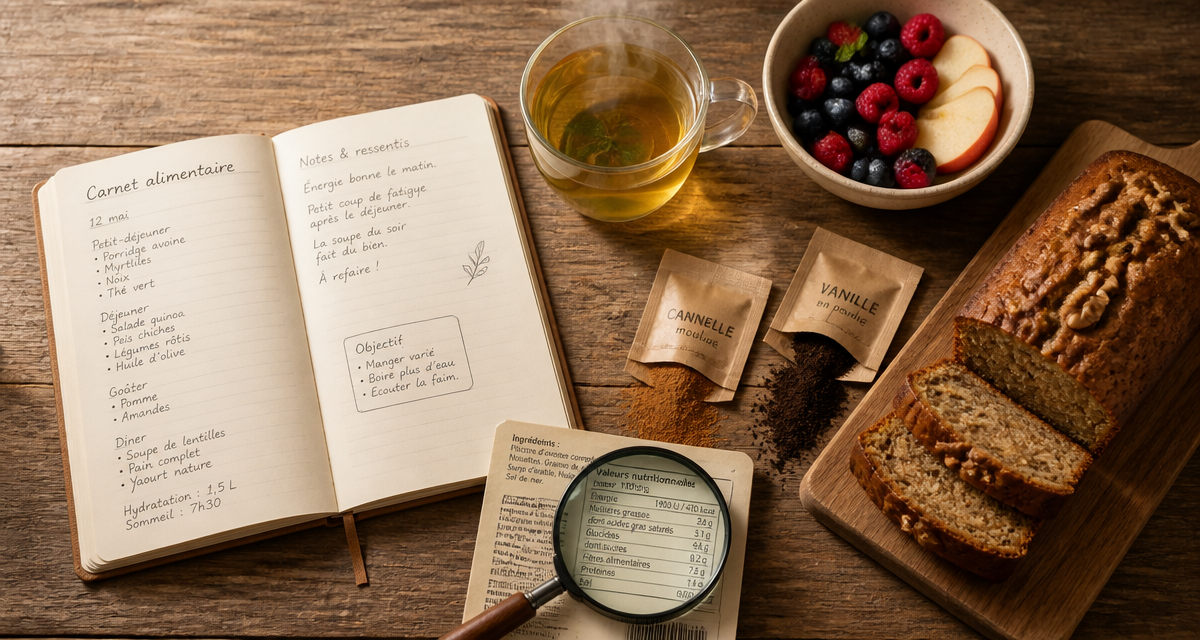 Carnet alimentaire
12 mai
Petit-déjeuner
• Porridge avoine
• Myrtilles
• Noix
• Thé vert
Déjeuner
• Salade quinoa
• Pois chiches
• Légumes rôtis
• Huile d'olive
Goûter
• Pomme
• Amandes
Dîner
• Soupe de lentilles
• Pain complet
• Yaourt nature
Hydratation : 1,5 L
Sommeil : 7h30
Notes & ressentis
Énergie bonne le matin.
Petit coup de fatigue
après le déjeuner.
La soupe du soir
fait du bien.
À refaire !
Objectif
• Manger varié
• Boire plus d'eau
• Écouter la faim.
CANNELLE
moulue
VANILLE
en poudre
Ingrédients :
Sel de mer.
Valeurs nutritionnelles
Énergie
Matières grasses
dont acides gras saturés
Glucides
Fibres alimentaires
Protéines